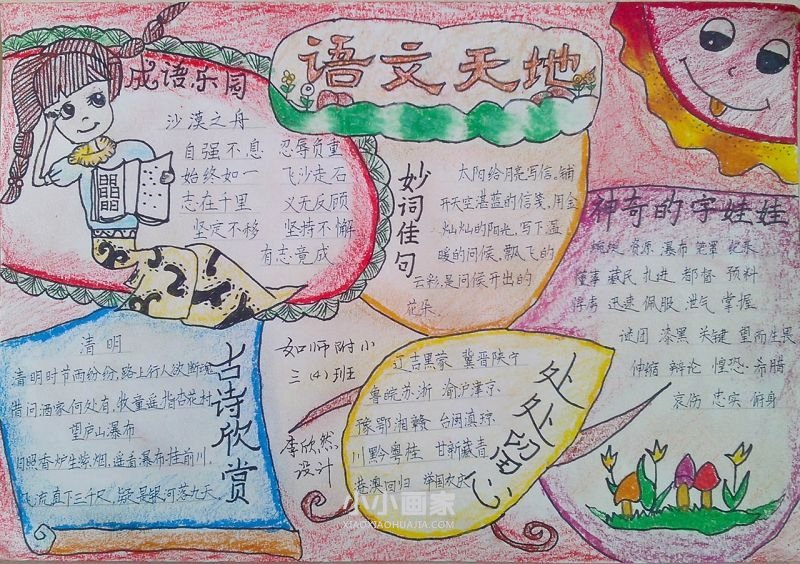 语文天地
成语乐园
沙漠之舟
自强不息 忍辱负重
始终如一 飞沙走石
志在千里 义无反顾
坚定不移 坚持不懈
有志竟成
妙词佳句
太阳给月亮写信。铺
开天空湛蓝的信笺,用金
灿灿的阳光,写下温
暖的问候,飘飞的
云彩,是问候开出的
花朵。
神奇的字娃娃
资源 瀑布 笼罩
懂事 藏民 扎进 都督 预料
迅速 佩服 泄气 掌握
谜团 漆黑 关键 望而生畏
伸缩 辩论 惶恐 希腊
哀伤 忠实 俯身
古诗欣赏
清明
清明时节雨纷纷,路上行人欲断魂
借问酒家何处有,牧童遥指杏花村
望庐山瀑布
日照香炉生紫烟,遥看瀑布挂前川,
飞流直下三千尺,疑是银河落九天。
如师附小
三(4)班
李欣然
设计
处处留心
辽吉黑蒙 冀晋陕宁
粤皖苏浙 渝沪津京
豫鄂湘赣 台闽滇琼
川黔粤桂 甘新藏青
港澳回归 举国欢庆
小小画家
XIAOXIAOHUAJIA.COM